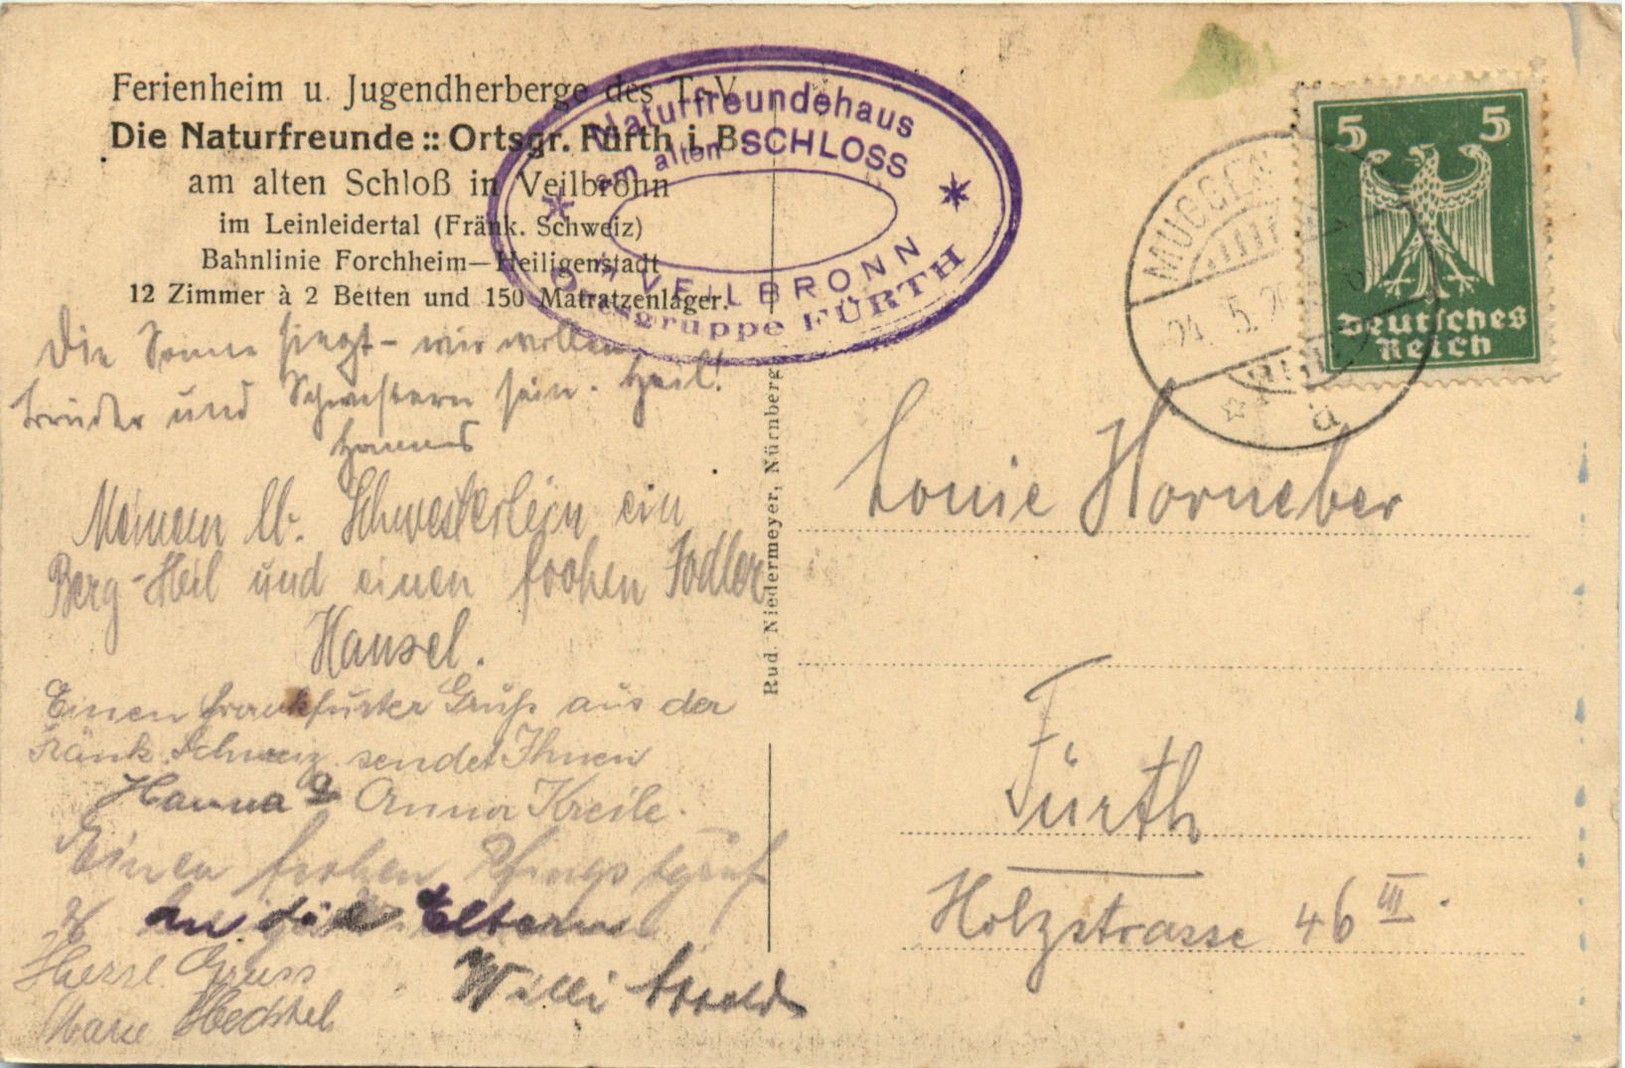 Ferienheim u. Jugendherberge des T.-V.
Die Naturfreunde :: Ortsgr. Fürth i. B.
am alten Schloß in Veilbronn
im Leinleidertal (Fränk. Schweiz)
Bahnlinie Forchheim—Heiligenstadt
12 Zimmer à 2 Betten und 150 Matratzenlager.
Naturfreundehaus
am alten SCHLOSS
VEILBRONN
Ortsgruppe FÜRTH
MUGGEN
24. 5. 26
a
5 5
Deutsches
Reich
Die Sonne siegt - wir wollen
Brüder und Schwestern sein. Heil!
Hanns
Meinem lb. Schwesterlein ein
Berg-Heil und einen frohen Jodler
Hansel.
Einen Frankfurter Gruß aus der
Fränk. Schweiz sendet Ihnen
Hanna & Anna Kreile.
Einen frohen Pfingstgruß
an die Eltern
Herzl Gruss
Marie
Willi
Rud. Niedermeyer, Nürnberg
Lonie Horneber
Fürth
Holzstrasse 46 III.